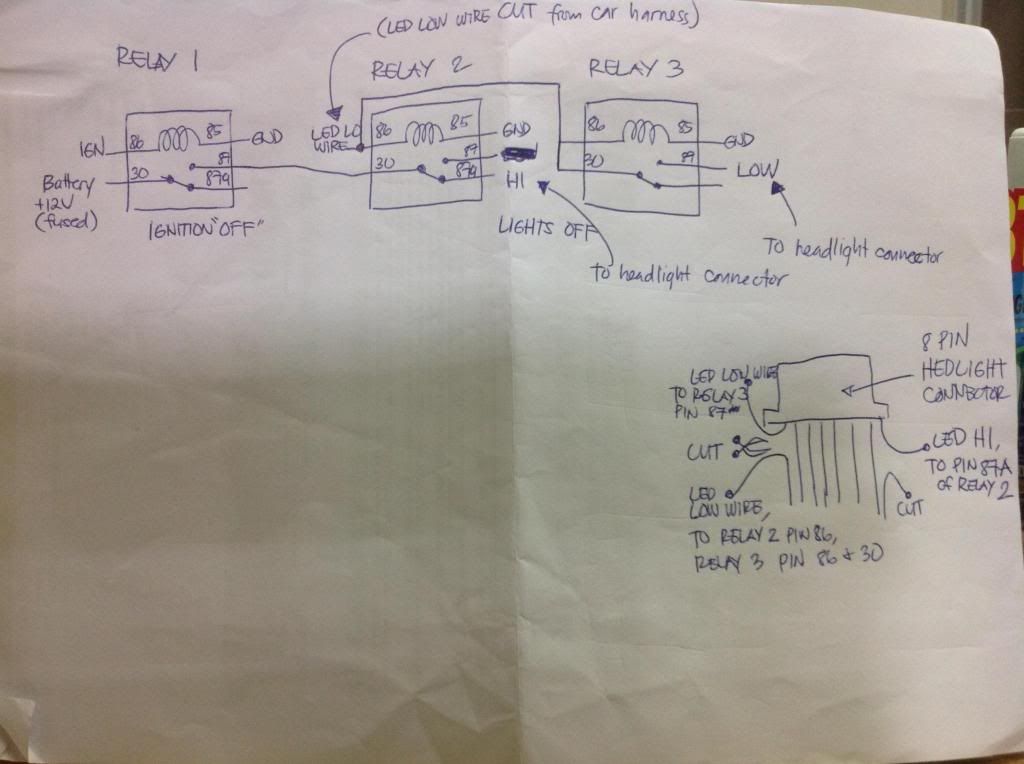 (LED LOW WIRE CUT from car harness)
RELAY 1
RELAY 2
RELAY 3
IGN
86
85
GND
30
89
87a
Battery
+12V
(fused)
IGNITION "OFF"
LED LO
WIRE
86
85
GND
30
89
87a
HI
LIGHTS OFF
To headlight connector
86
85
GND
30
89
LOW
To headlight connector
8 PIN
HEDLIGHT
CONNECTOR
LED LOW WIRE
TO RELAY 3
PIN 87
CUT
LED
LOW WIRE,
TO RELAY 2 PIN 86,
RELAY 3 PIN 86 + 30
LED HI,
TO PIN 87A
OF RELAY 2
CUT